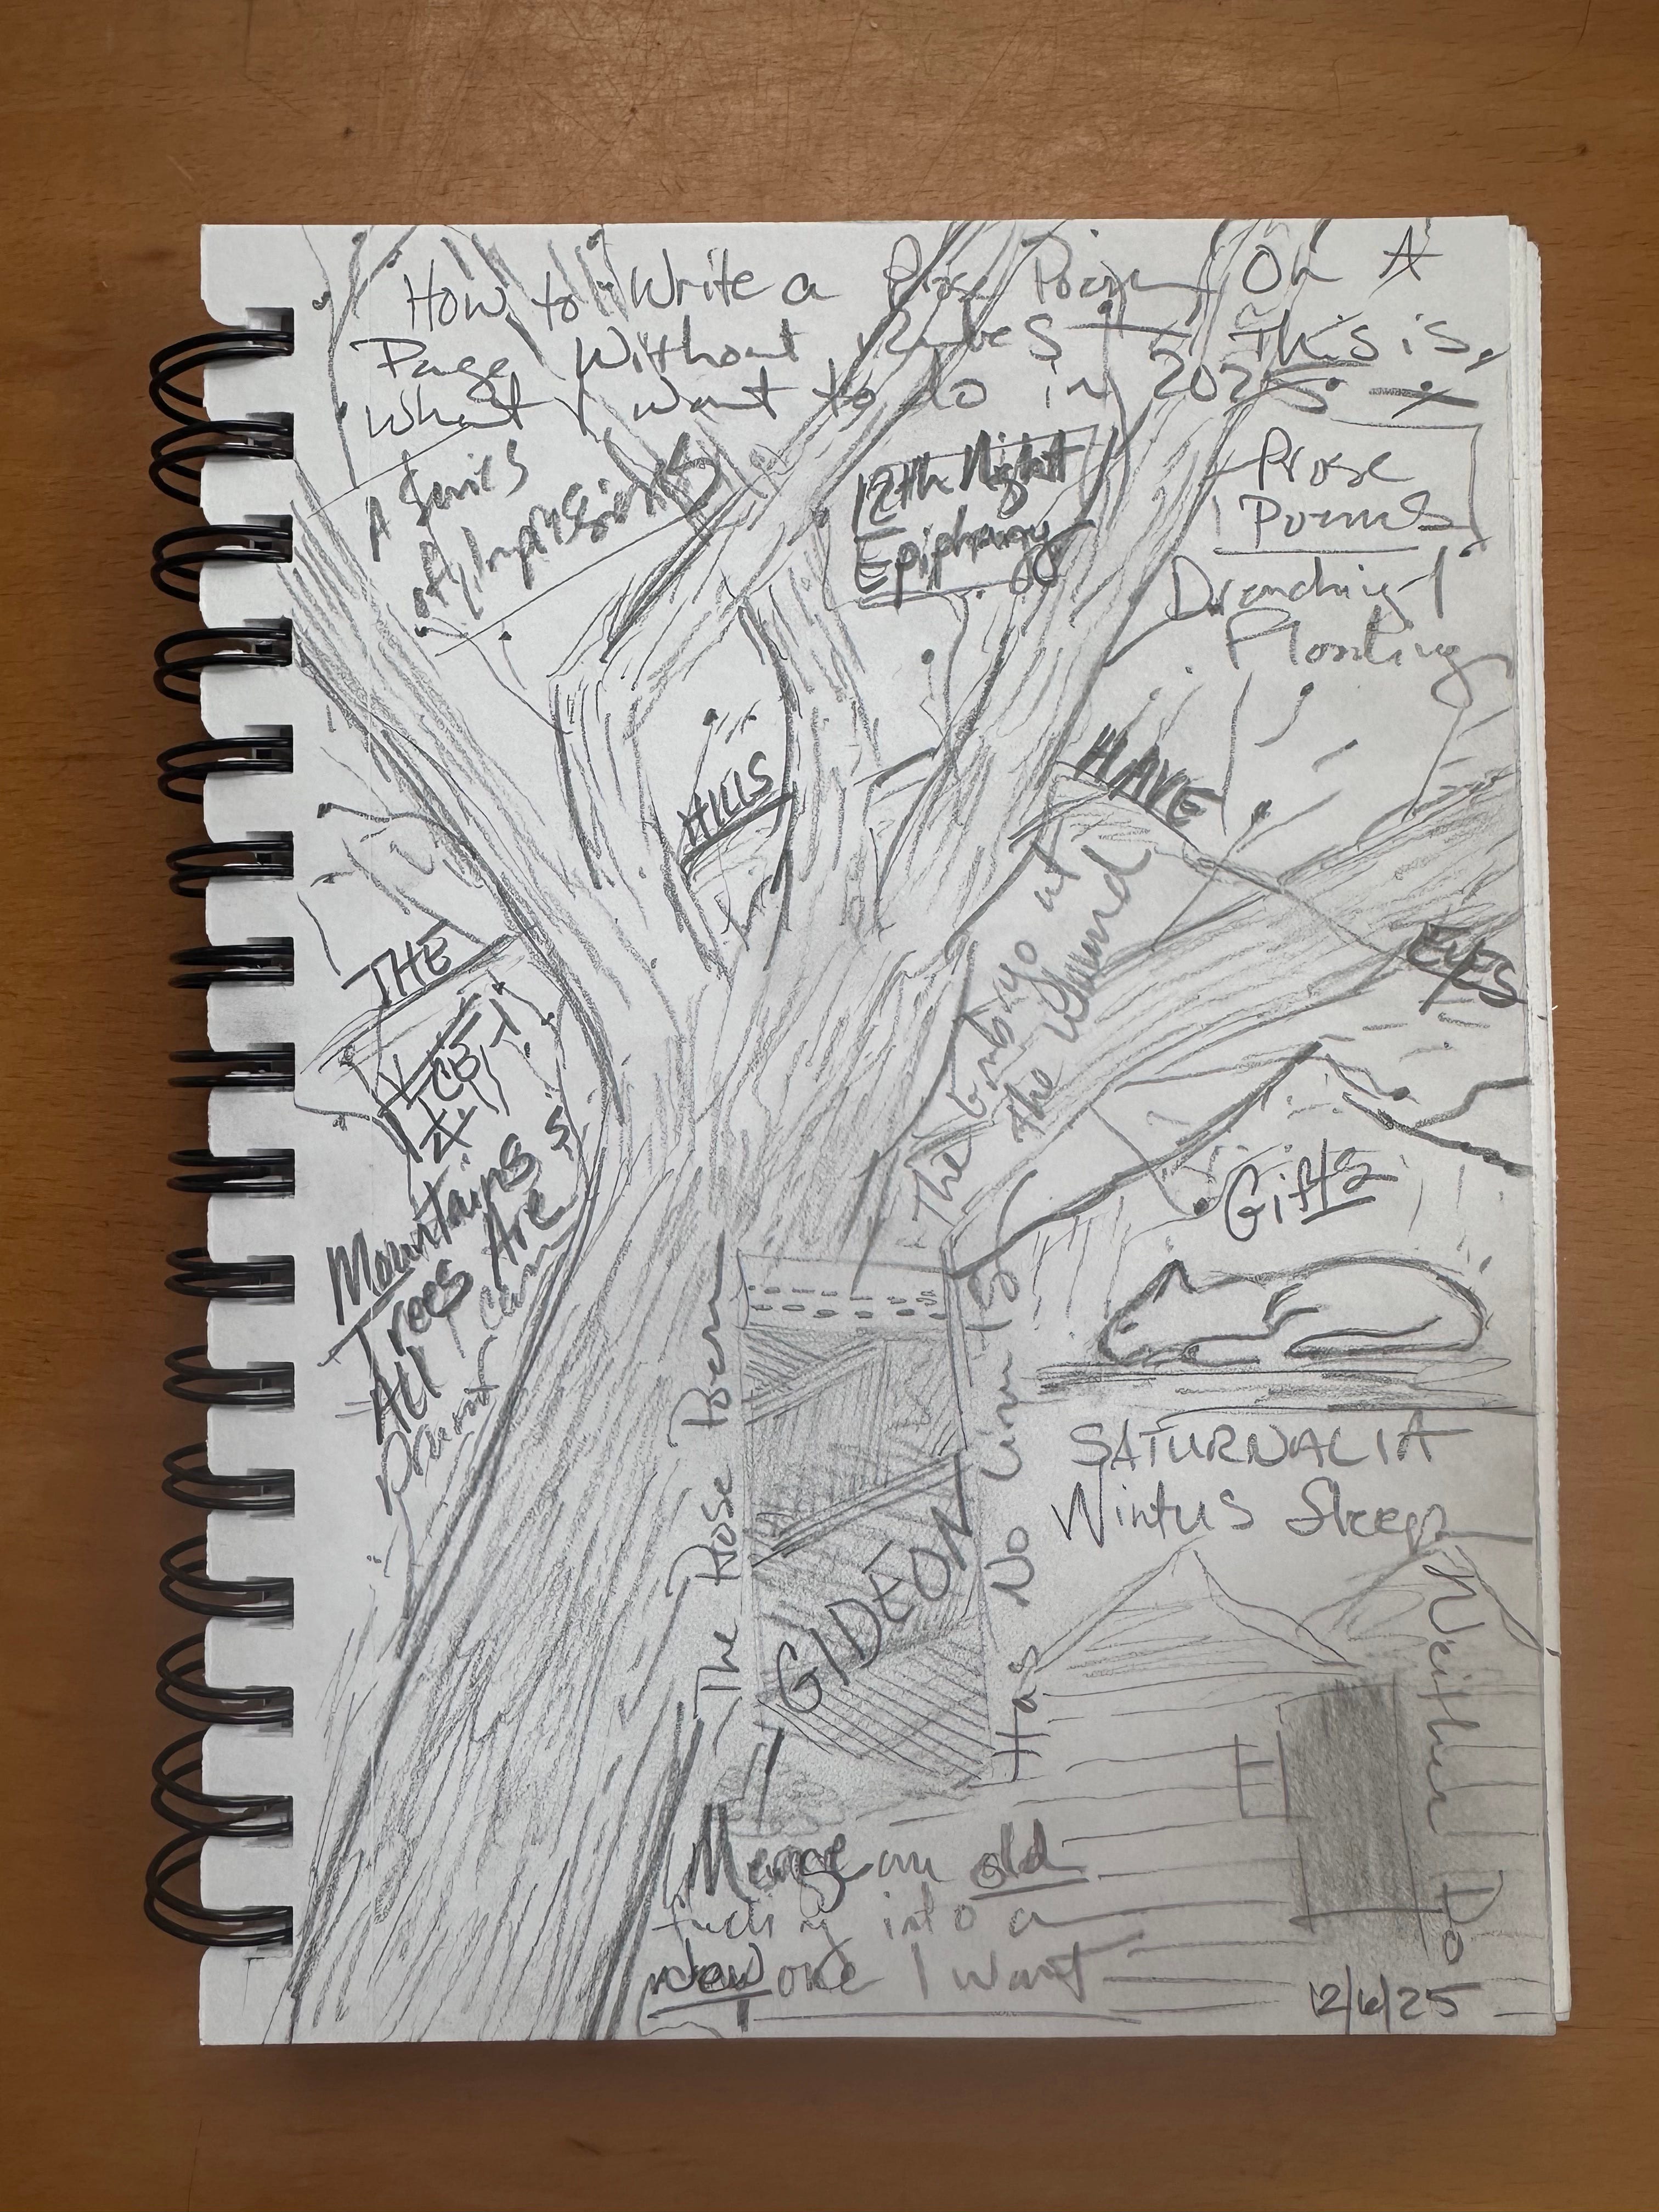 How to Write a Prose Poem On A
Page Without Rules This is,
What I want to do in 2025
A Series
of Impressions
12th Night
Epiphany
Prose
Poems
Drenching
Flooding
HILLS
HAVE
EYES
THE
The Embryo at
the Wound
Mountains
Trees Are
All I can
Gifts
SATURNALIA
Winter's Sleep
The Prose Poem
GIDEON
Has No Lim
Neither Do
Merge an old
into a
new one I want
12/6/25